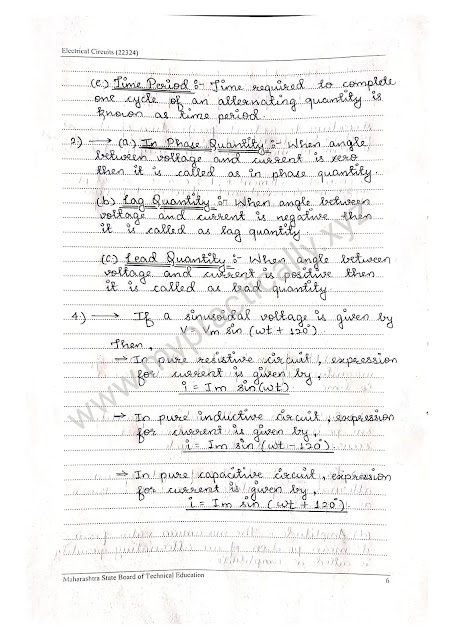 Electrical Circuits (22324)
(c.) Time Period :- Time required to complete
one cycle of an alternating quantity is
known as time period
2) → (a) In Phase Quantity :- When angle
between voltage and current is zero
then it is called as in phase quantity.
(b) Lag Quantity :- When angle between
voltage and current is negative then
it is called as lag quantity
(c) Lead Quantity :- When angle between
voltage and current is positive then
it is called as lead quantity
4.) → If a sinusoidal voltage is given by
V = Vm sin (wt + 120°)
Then,
→ In pure resistive circuit, expression
for current is given by,
i = Im sin(wt)
→ In pure inductive circuit, expression
for current is given by,
i = Im sin (wt - 120°)
→ In pure capacitive circuit, expression
for current is given by,
i = Im sin (wt + 120°)
Maharashtra State Board of Technical Education
6
www.mypractically.xyz